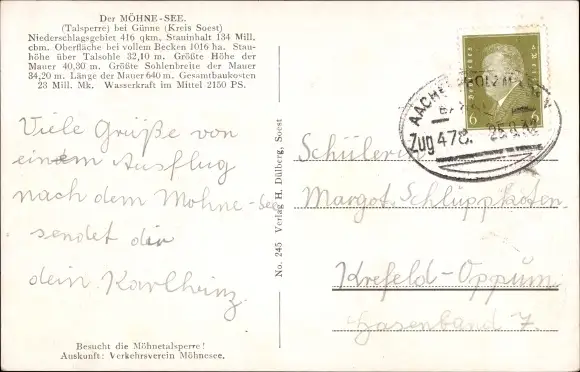 Der MÖHNE-SEE.
(Talsperre) bei Günne (Kreis Soest)
Niederschlagsgebiet 416 qkm, Stauinhalt 134 Mill.
cbm. Oberfläche bei vollem Becken 1016 ha. Stau-
höhe über Talsohle 32,10 m. Größte Höhe der
Mauer 40,30 m. Größte Sohlenbreite der Mauer
34,20 m. Länge der Mauer 640 m. Gesamtbaukosten
23 Mill. Mk. Wasserkraft im Mittel 2150 PS.
Viele Grüße von
einem Ausflug
nach dem Möhne-See
sendet dir
dein Karlheinz
Besucht die Möhnetalsperre!
Auskunft: Verkehrsverein Möhnesee.
No. 245 Verlag H. Dülberg, Soest
Deutsches Reich
6 6
AACHEN
Zug 478.
Schülerin
Margot Schluppkoten
Krefeld-Oppum
Hasenband 7